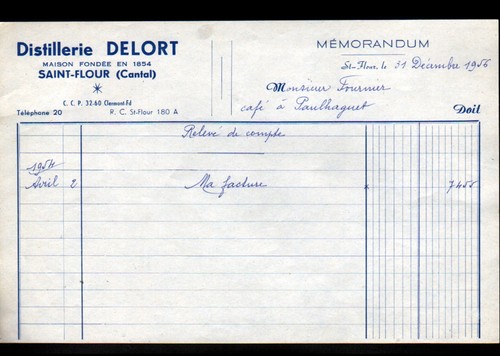 Distillerie DELORT
MAISON FONDÉE EN 1854
SAINT-FLOUR (Cantal)
C. C. P. 32-60 Clermont-Fd
Téléphone 20 R. C. St-Flour 180 A
MÉMORANDUM
St-Flour, le 31 Décembre 1956
Monsieur Fournier
café à Paulhaguet
Doit
Relevé de compte
1954
Avril 2 Ma facture x 7455